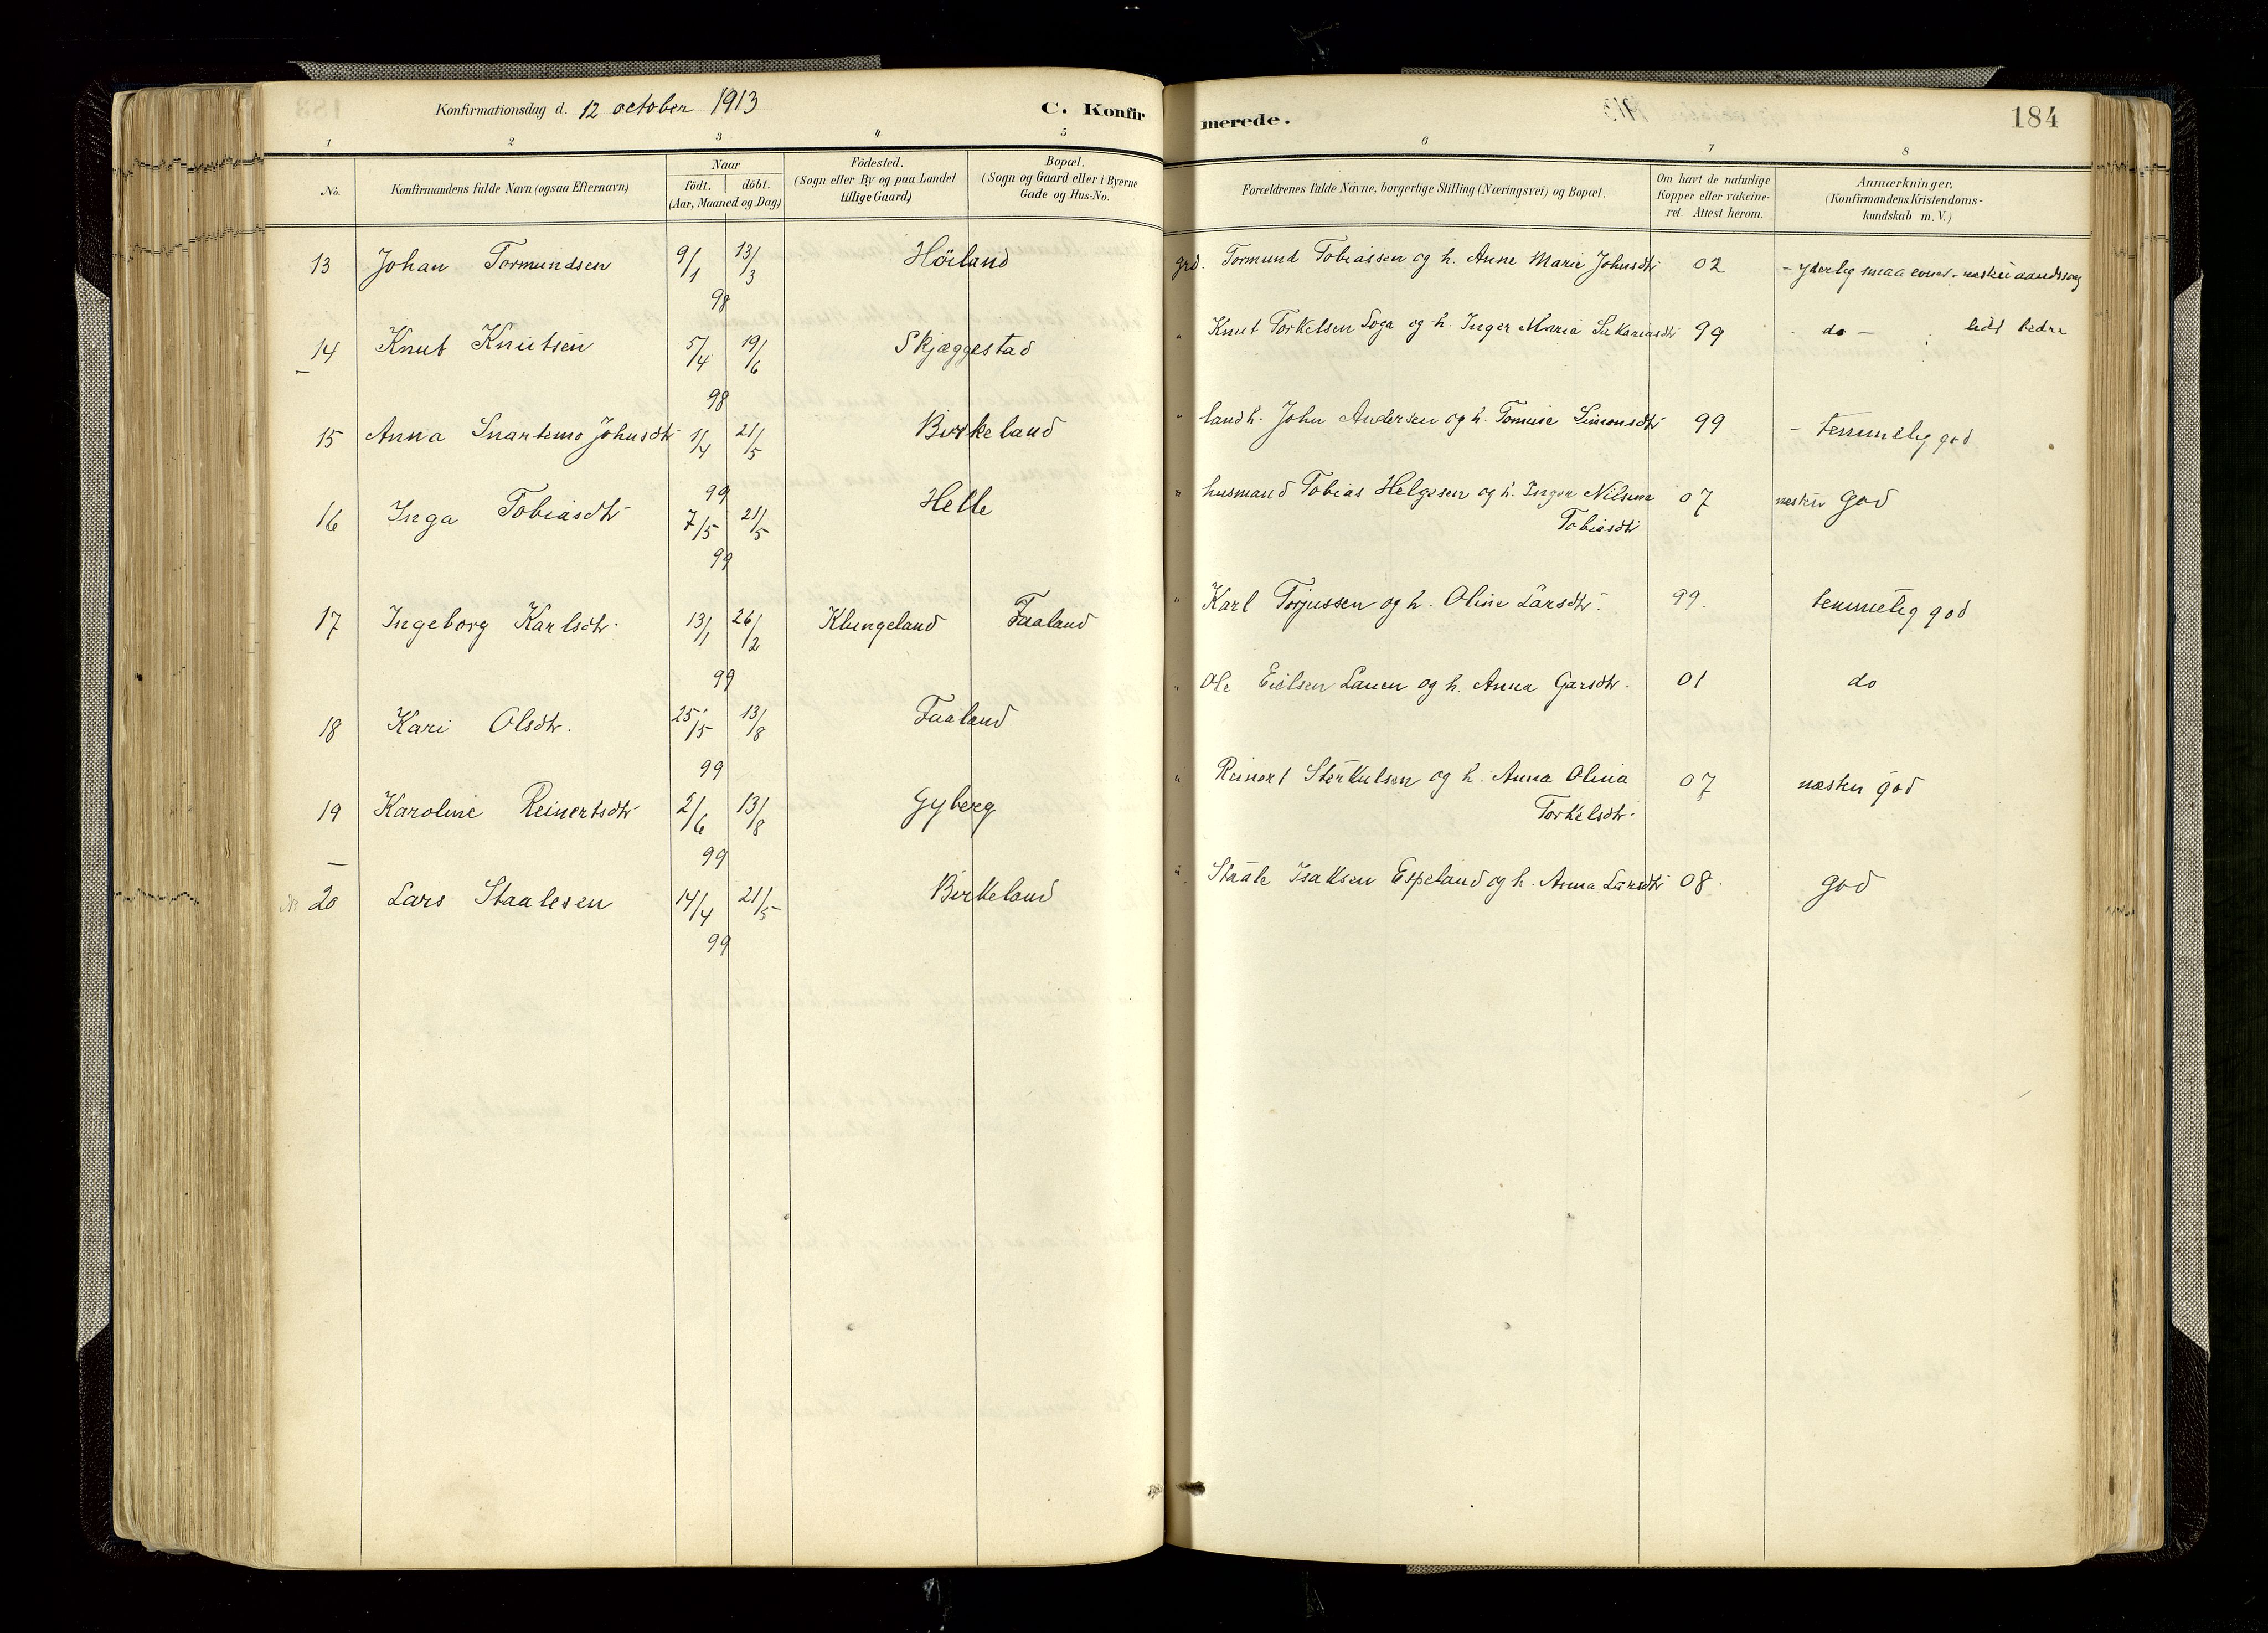 Konfirmationsdag d. 12 october 1913
C. Konfirmerede.
184
1 2 3 4 5 6 7 8
No.
Konfirmandens fulde Navn (ogsaa Efternavn)
Naar
født. | döbt.
(Aar, Maaned og Dag)
Födested.
(Sogn eller By og paa Landet
tillige Gaard)
Bopæl.
(Sogn og Gaard eller i Byerne
Gade og Hus-No.
Forældrenes fulde Navne, borgerlige Stilling (Næringsvei) og Bopæl.
Om havt de naturlige
Kopper eller vakcine-
ret. Attest herom.
Anmærkninger.
(Konfirmandens Kristendoms-
kundskab m. V.)
13 Johan Tormundsen 9/1 13/3 Höiland grd. Tormund Tobiassen og h. Anne Marie Johnsdtr 02 - yderlig smaa evner -
98
14 Knut Knutsen 5/4 19/6 Skjæggestad " Knut Torkelsen Loga og h. Inger Maria Sakariasdtr 99 - do - lidt bedre
98
15 Anna Snartemo Johnsdtr 1/4 21/5 Birkeland " landh. John Andersen og h. Tomine Simonsdtr 99 - temmelig god
99
16 Inga Tobiasdtr 7/5 21/5 Helle " husmand Tobias Helgesen og h. Inger Nilsina 07 næsten god
Tobiasdtr
99
17 Ingeborg Karlsdtr. 13/1 26/2 Klungeland Faaland " Karl Torjussen og h. Oline Larsdtr. 99. temmelig god
99
18 Kari Olsdtr. 25/5 13/8 Faaland " Ole Eielsen Lauen og h. Anna Garsdtr. 01 do
99
19 Karoline Reinertsdtr 2/6 13/8 Gyberg " Reinert Sterkulsen og h. Anna Olina 07 næsten god
Torkelsdtr.
99
20 Lars Staalesen 14/4 21/5 Birkeland " Staale Isaksen Espeland og h. Anna Larsdtr 08. god
99